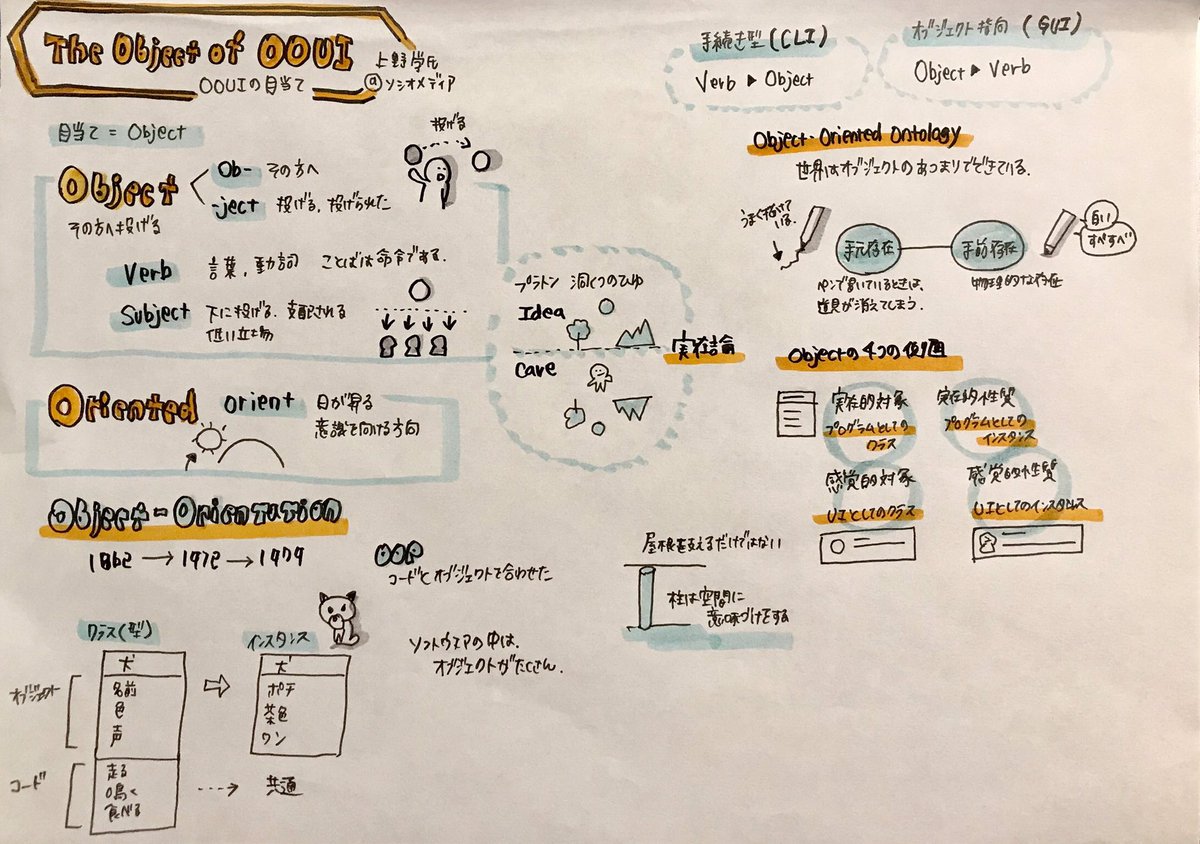 The Object of OOUI
OOUIの目当て
上野学氏
@ソシオメディア
目当て = Object
Object
その方へ投げる
Ob- その方へ
-ject 投げる, 投げられた
投げる
Verb 言葉, 動詞 ことばは命令である.
Subject 下に投げる. 支配される
低い立場
Oriented orient 日が昇る
意識を向ける方向
プラトン 洞くつのひゆ
Idea
Cave
実在論
Object-Orientation
1962 → 1972 → 1979
OOP
コードとオブジェクトを合わせた
クラス(型)
犬
名前
色
声
走る
鳴く
食べる
オブジェクト
コード
インスタンス
犬
ポチ
茶色
ワン
共通
ソフトウェアの中は、
オブジェクトがたくさん.
手続き型(CLI)
Verb ▶ Object
オブジェクト指向 (GUI)
Object ▶ Verb
Object-Oriented Ontology
世界はオブジェクトのあつまりでできている.
うまく描けて
いる.
手元存在
手前存在
白い
すべすべ
ペンで書いているときは、
道具が消えてしまう.
物理的な存在
Objectの4つの側面
実在的対象
プログラムとしての
クラス
実在的性質
プログラムとしての
インスタンス
感覚的対象
UIとしてのクラス
感覚的性質
UIとしてのインスタンス
屋根を支えるだけではない
柱は空間に
意味づけをする